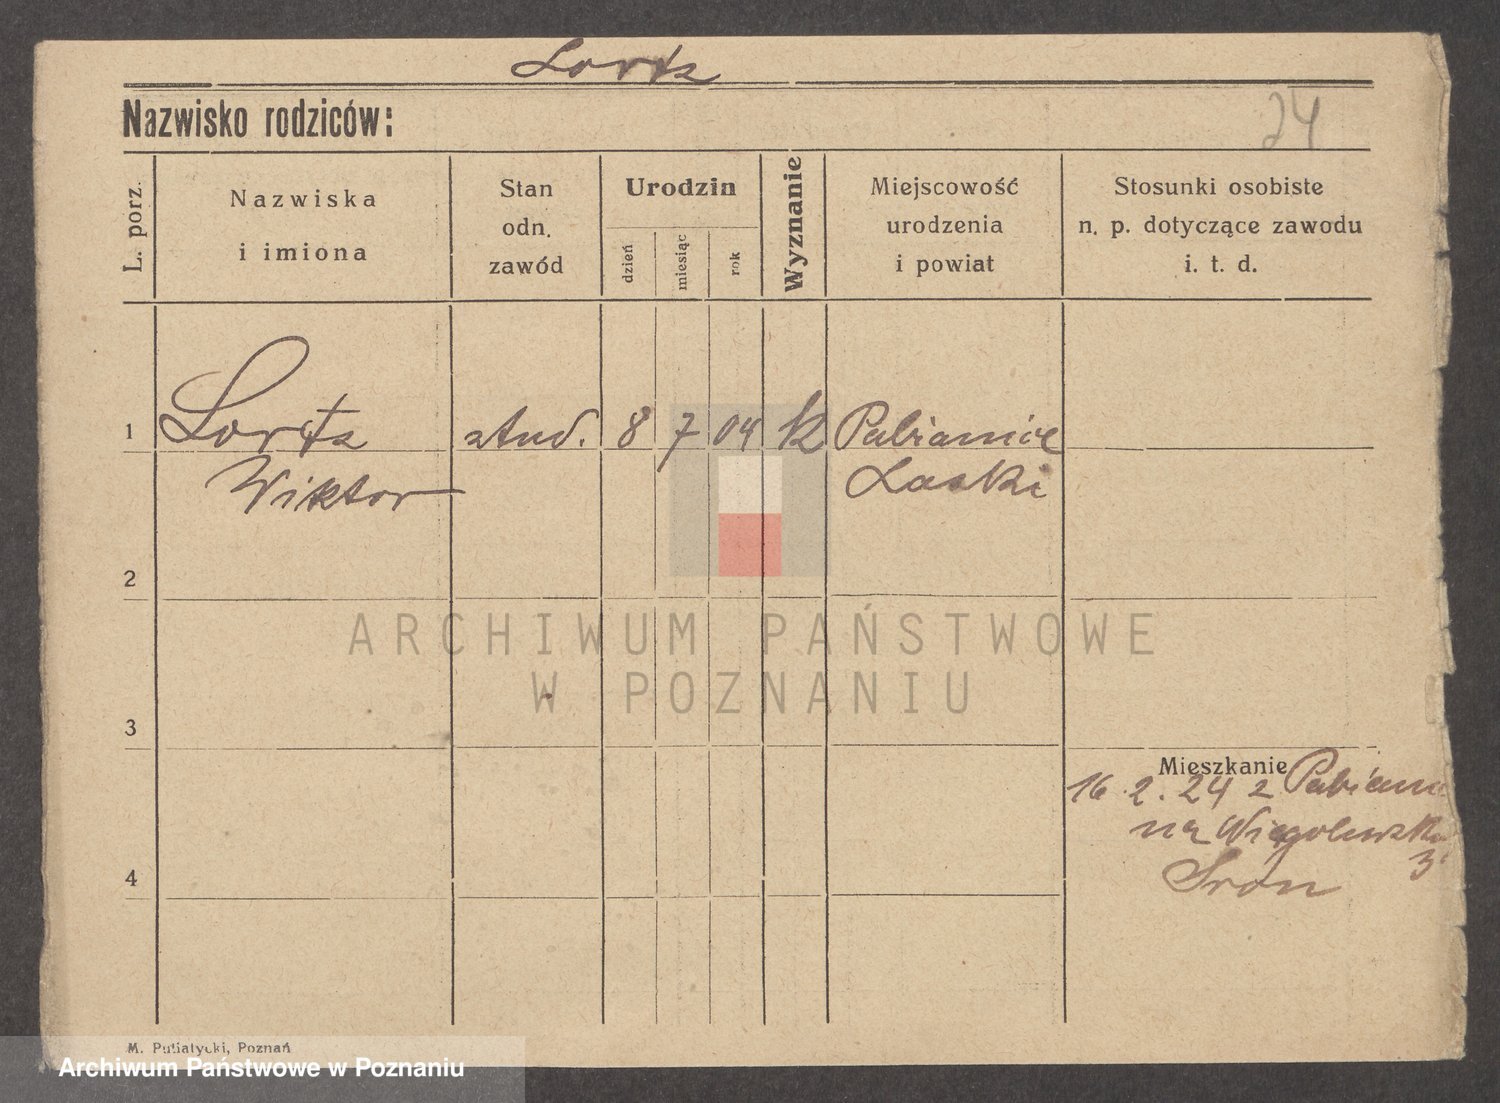 Lortz
Nazwisko rodziców:
24
L. porz.
Nazwiska
i imiona
Stan
odn.
zawód
Urodzin
dzień
miesiąc
rok
Wyznanie
Miejscowość
urodzenia
i powiat
Stosunki osobiste
n. p. dotyczące zawodu
i. t. d.
1
Lortz
stud.
8
7
04
k
Pabianice
Wiktor
Laski
2
ARCHIWUM PAŃSTWOWE
W POZNANIU
3
Mieszkanie
16.2.24 z
na
4
M. Putiatycki, Poznań
Archiwum Państwowe w Poznaniu